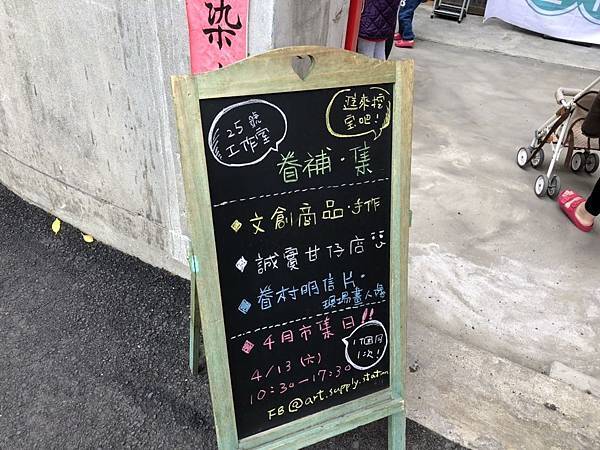 染
25號
工作室
進來挖
寶吧!
眷補·集
文創商品·手作
誠實甘仔店
眷村明信片·
現場畫人像
4月市集日!!
1個月
1次!
4/13(六)
10:30-17:30
FB@art.supply.station